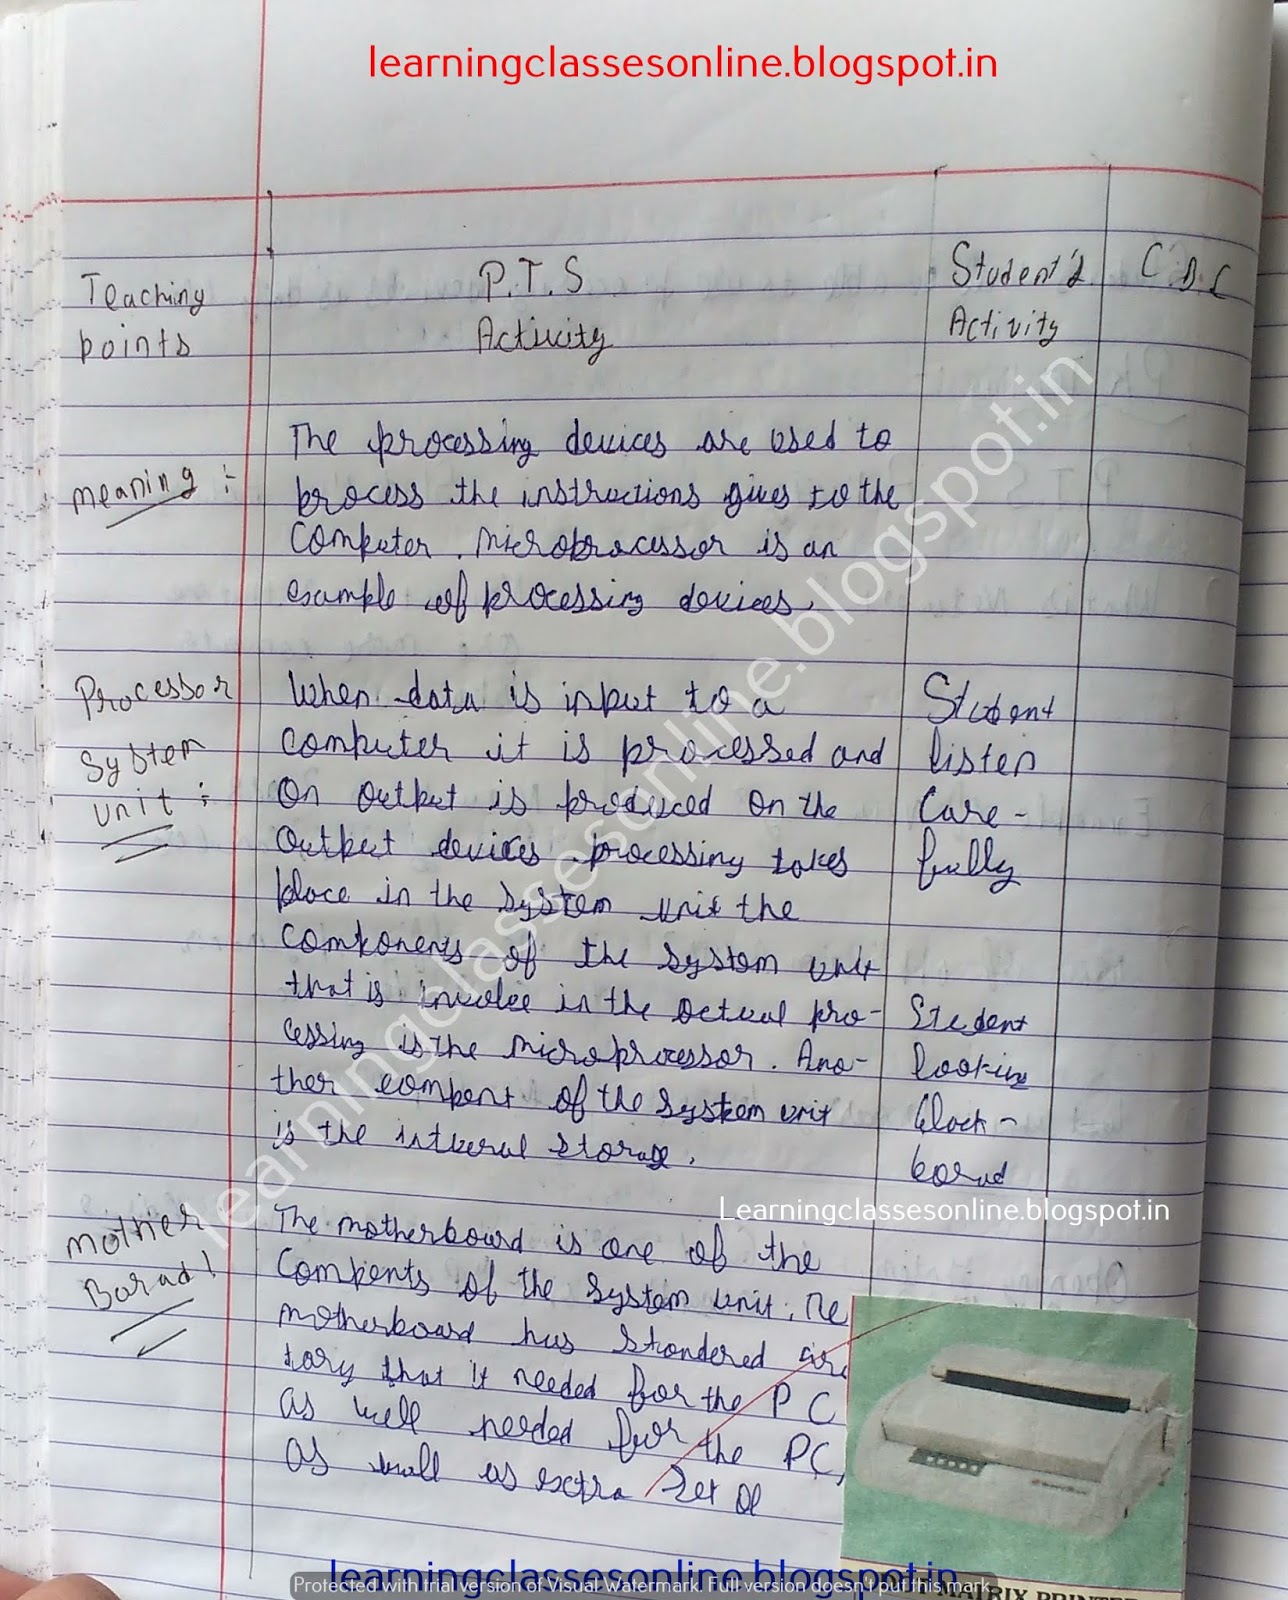 learningclassesonline.blogspot.in
Teaching points
P.T.S Activity
Student's Activity
C.B.C
meaning :-
The processing devices are used to
process the instructions gives to the
Computer. Microprocessor is an
example of processing devices.
Processor
System
unit :-
When data is input to a
Computer it is processed and
On output is produced on the
Output devices processing takes
place in the system unit the
Components of the system unit
that is involve in the actual pro-
cessing is the microprocessor. Ano-
ther compent of the system unit
is the internal storage.
Student
listen
Care-
fully
Student
looking
black-
borad
Learningclassesonline.blogspot.in
mother
Borad
The motherboard is one of the
Compents of the system unit. The
motherboard has standered
tory that it needed for the PC
as well needed for the PC,
as well as extra set of
learningclassesonline.blogspot.in
learningclassesonline.blogspot.in
Protected with trial version of Visual Watermark. Full version doesn't put this mark.
MATRIX PRINTER